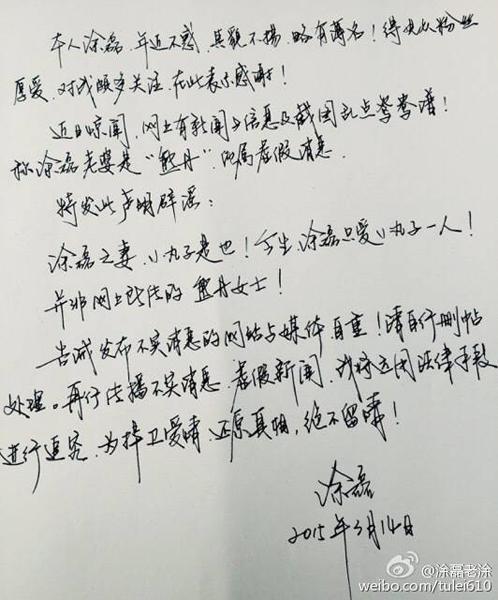 本人涂磊，年近不惑，其貌不扬，略有薄名！得众以粉丝
厚爱，对我颇多关注，在此表示感谢！
近日惊闻，网上有新闻与信息及截图乱点鸳鸯谱！
称涂磊老婆是“熊丹”，此属虚假消息。
特发此声明辟谣：
涂磊之妻，小丸子是也！今生，涂磊只爱小丸子一人！
并非网上所传的熊丹女士！
告诫发布不实消息的网站与媒体，自重！请自行删帖
处理。再行传播不实消息，虚假新闻，我将运用法律手段
进行追究，为捍卫爱情，还原真相，绝不留情！
涂磊
2015年3月14日
@涂磊老涂
weibo.com/tulei610